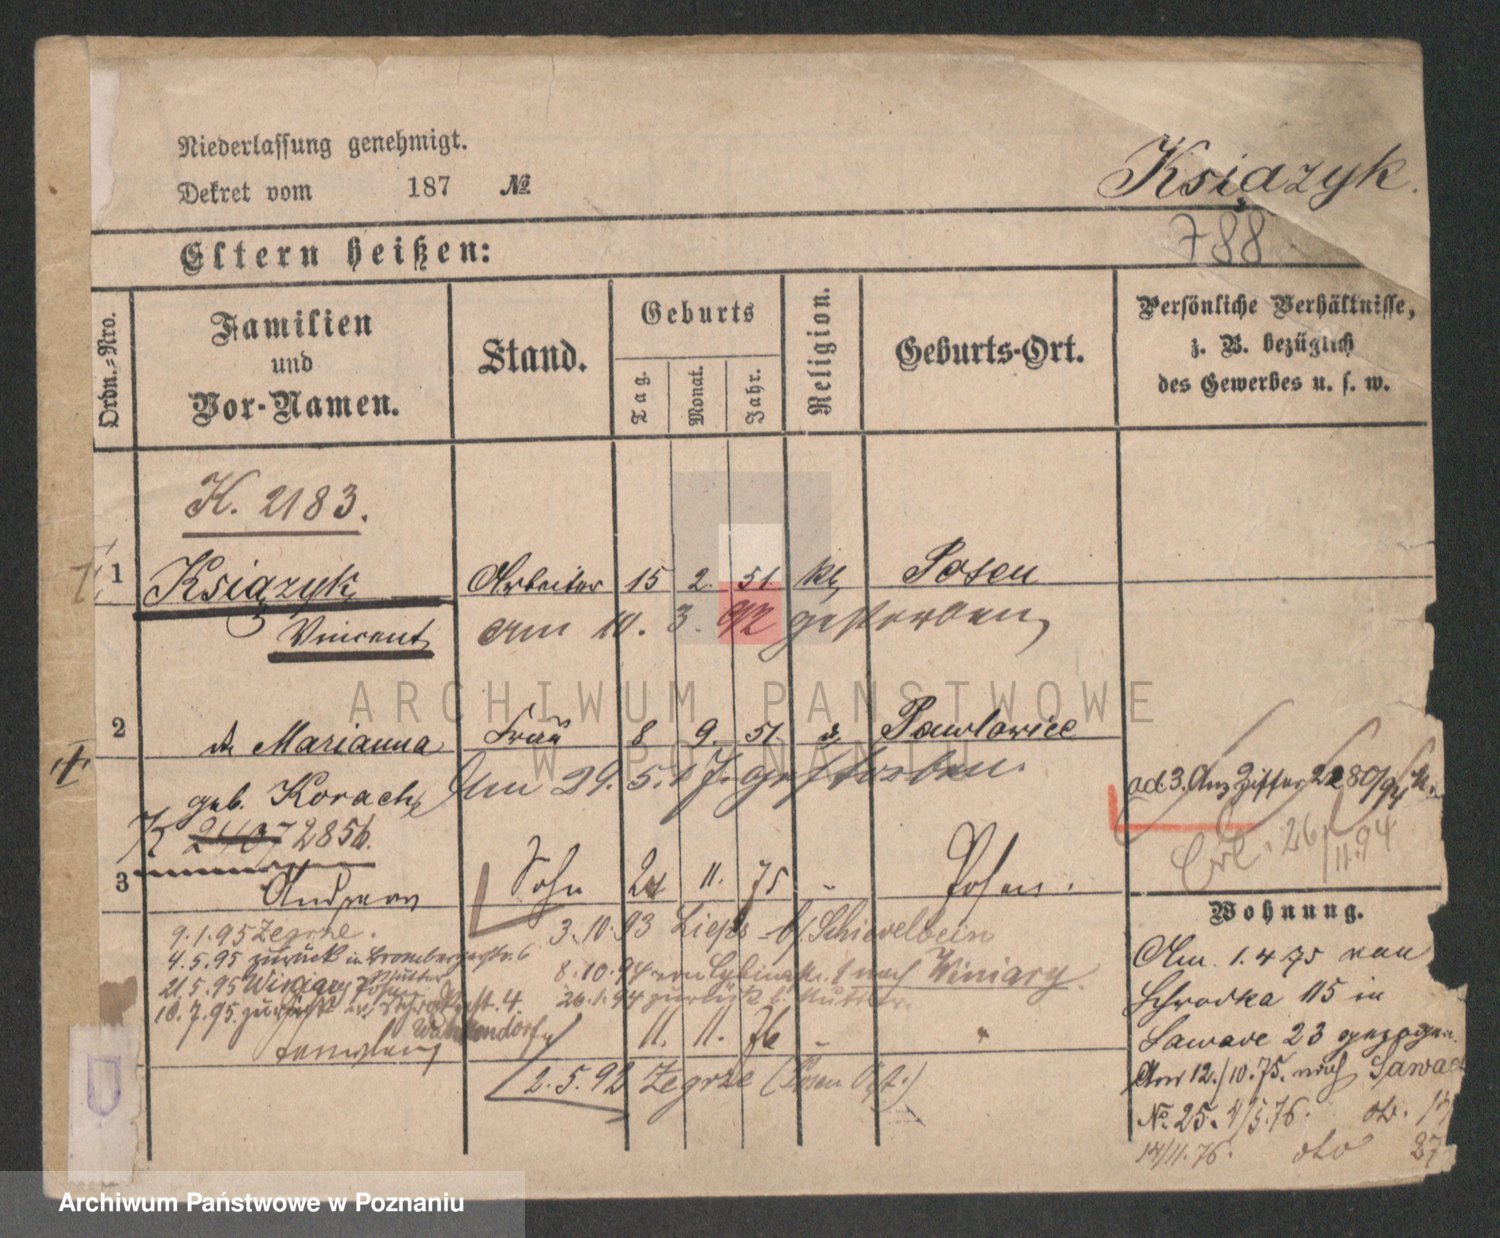 Niederlassung genehmigt.
Dekret vom 187 №
Książyk.
788
Eltern heißen:
Ordn.-Nro.
Familien
und
Vor-Namen.
Stand.
Geburts
Tag.
Monat.
Jahr.
Religion.
Geburts-Ort.
Persönliche Verhältnisse,
z. B. bezüglich
des Gewerbes u. s. w.
K. 2183.
1 Książyk Arbeiter 15 2. 51. kt Posen
Vincent am 10. 3. 92 gestorben
ARCHIWUM PAŃSTWOWE
W POZNANIU
2 Marianna Frau 8 9. 51. Pawlowice
geb. Korach Am 29. 5. gestorben.
K 2407 2856.
ad 3. Anz Ziffer 2280/94
Erl. 26/11.94
3 Andreas Sohn 24 11. 75 - Posen.
9.1.95 Zegrze.
3.10.93 Schievelbein
4.5.95 zurück in Brombergerstr. 6
8.10.94 nach Winiary.
21.5.95 Winiary
26.1.94 zurück
10.7.95. zurück 4.
11. 11. 76 -
2.5.92 Zegrze (Posen Ost.)
Wohnung.
Am. 1.4 75 von
Schrodka 115 in
Sawade 23 gezogen
Am 12./10.75. nach Sawade
No. 25. 1/5.76.
14/11.76. 27
Archiwum Państwowe w Poznaniu